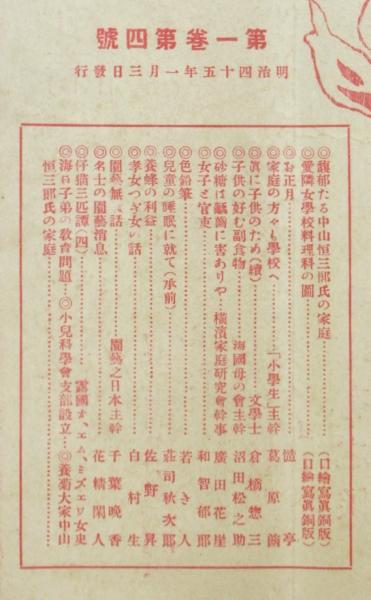 第一卷第四號
明治四十五年一月三日發行
◎馥郁たる中山恒三郎氏の家庭………（口繪寫眞銅版）
◎愛隣女學校料理科の圖………（口繪寫眞銅版）
◎お正月………憶亭
◎家庭の方々も學校へ………「小學生」主幹 葛原𦱳
◎眞に子供のため（續）………文學士 倉橋惣三
◎子供の好む副食物………海國母の會主幹 沼田松之助
◎砂糖は齲齒に害ありや…橫濱家庭研究會幹事 廣田花崖
◎女子と官吏………和智郁郎
◎色鉛筆………若き人
◎兒童の睡眠に就て（承前）………莊司秋次郎
◎養蜂の利益………佐野昇
◎孝女つぎ女の話………白村生
◎園藝無駄話………園藝之日本主幹 千葉晩香
◎名士の園藝消息………花癖閑人
◎仔猫三匹譚（四）………露國オ、エム、ミズエワ女史
◎海員子弟の敎育問題…◎小兒科學會支部設立…◎養菊大家中山
恒三郎氏の家庭………